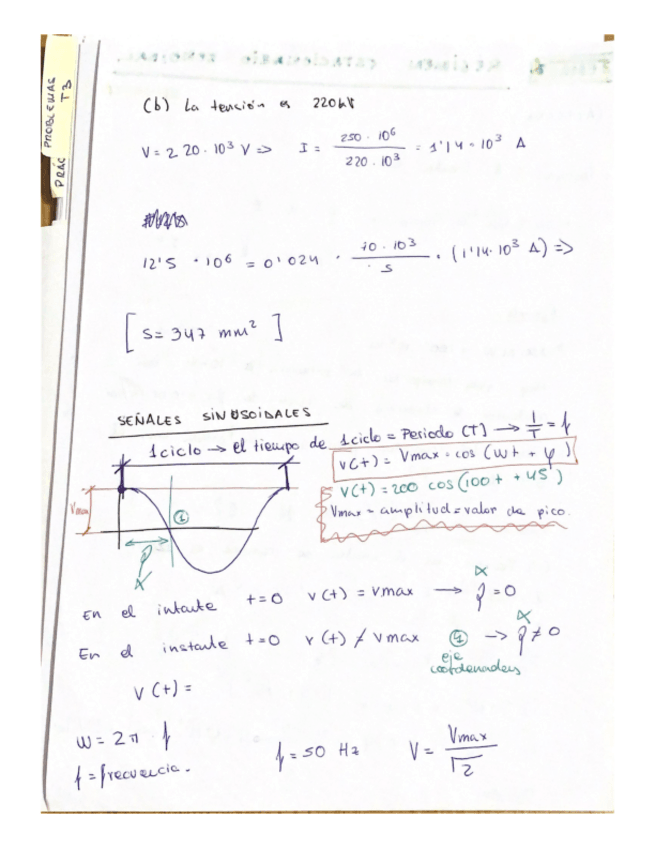 PROBLEMAS
PRÁC T3
(b) La tensión es 220kV
V = 2 20 · 10³ V => I = 250 · 10⁶ / 220 · 10³ = 1'14 · 10³ A
12'5 · 10⁶ = 0'024 · 70 · 10³ / S · (1'14 · 10³ A) =>
[ S = 347 mm² ]
SEÑALES SINUSOIDALES
1 ciclo → el tiempo de 1 ciclo = Periodo (T) → 1/T = f
v(t) = Vmax · cos (wt + φ)
v(t) = 200 cos (100t + 45°)
Vmax = amplitud = valor de pico.
Vmax
①
φ
α
α
En el intante t=0 v(t) = vmax → φ = 0
α
En el instante t=0 v(t) ≠ vmax ① → φ ≠ 0
eje
coordenadas
v(t) =
w = 2π · f
f = 50 Hz V = Vmax / √2
f = frecuencia.